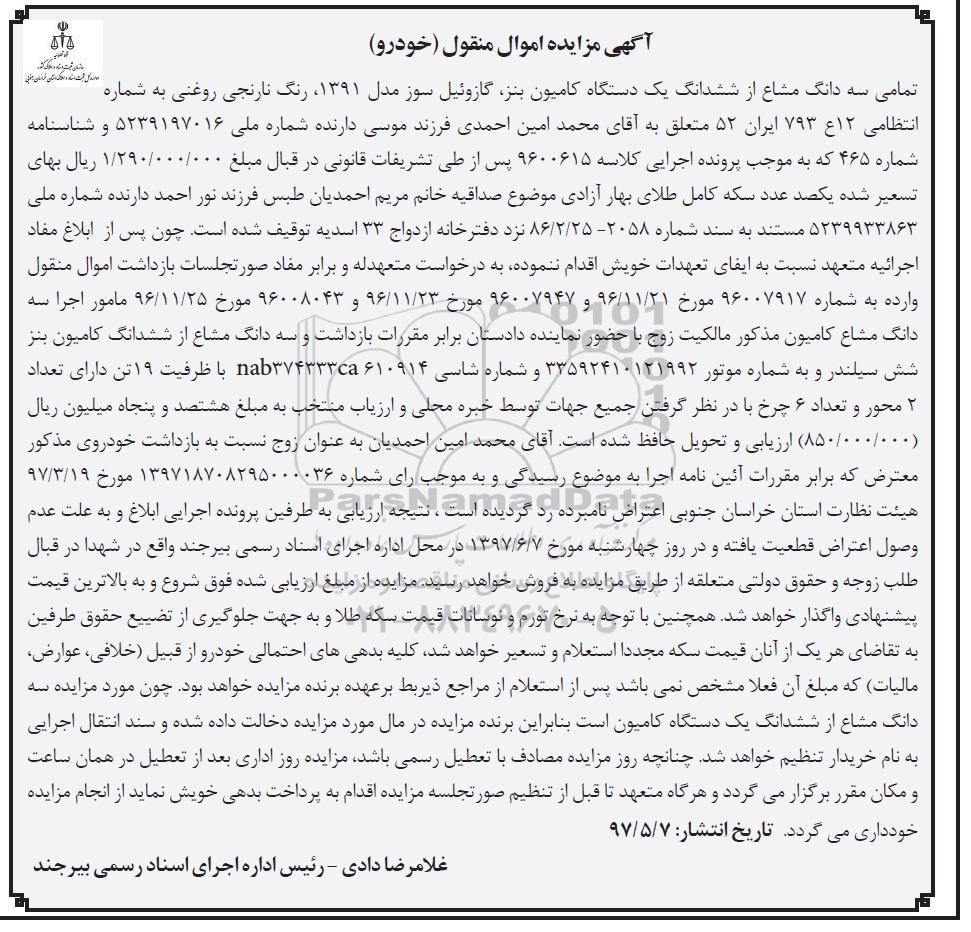 آگهی مزایده اموال منقول (خودرو)
قوه قضاییه
سازمان ثبت اسناد و املاک کشور
اداره کل ثبت اسناد و املاک استان خراسان جنوبی
تمامی سه دانگ مشاع از ششدانگ یک دستگاه کامیون بنز، گازوئیل سوز مدل ۱۳۹۱، رنگ نارنجی روغنی به شماره
انتظامی ۱۲ع ۷۹۳ ایران ۵۲ متعلق به آقای محمد امین احمدی فرزند موسی دارنده شماره ملی ۵۲۳۹۱۹۷۰۱۶ و شناسنامه
شماره ۴۶۵ که به موجب پرونده اجرایی کلاسه ۹۶۰۰۶۱۵ پس از طی تشریفات قانونی در قبال مبلغ ۱/۲۹۰/۰۰۰/۰۰۰ ریال بهای
تسعیر شده یکصد عدد سکه کامل طلای بهار آزادی موضوع صداقیه خانم مریم احمدیان طبس فرزند نور احمد دارنده شماره ملی
۵۲۳۹۹۳۳۸۶۳ مستند به سند شماره ۲۰۵۸- ۸۶/۲/۲۵ نزد دفترخانه ازدواج ۳۳ اسدیه توقیف شده است. چون پس از ابلاغ مفاد
اجرائیه متعهد نسبت به ایفای تعهدات خویش اقدام ننموده، به درخواست متعهدله و برابر مفاد صورتجلسات بازداشت اموال منقول
وارده به شماره ۹۶۰۰۷۹۱۷ مورخ ۹۶/۱۱/۲۱ و ۹۶۰۰۷۹۴۷ مورخ ۹۶/۱۱/۲۳ و ۹۶۰۰۸۰۴۳ مورخ ۹۶/۱۱/۲۵ مامور اجرا سه
دانگ مشاع کامیون مذکور مالکیت زوج با حضور نماینده دادستان برابر مقررات بازداشت و سه دانگ مشاع از ششدانگ کامیون بنز
شش سیلندر و به شماره موتور ۳۳۵۹۲۴۱۰۱۲۱۹۹۲ و شماره شاسی nab۳۷۴۳۳۳ca ۶۱۰۹۱۴ با ظرفیت ۱۹تن دارای تعداد
۲ محور و تعداد ۶ چرخ با در نظر گرفتن جمیع جهات توسط خبره محلی و ارزیاب منتخب به مبلغ هشتصد و پنجاه میلیون ریال
(۸۵۰/۰۰۰/۰۰۰) ارزیابی و تحویل حافظ شده است. آقای محمد امین احمدیان به عنوان زوج نسبت به بازداشت خودروی مذکور
معترض که برابر مقررات آئین نامه اجرا به موضوع رسیدگی و به موجب رای شماره ۱۳۹۷۱۸۷۰۸۲۹۵۰۰۰۰۳۶ مورخ ۹۷/۳/۱۹
هیئت نظارت استان خراسان جنوبی اعتراض نامبرده رد گردیده است ، نتیجه ارزیابی به طرفین پرونده اجرایی ابلاغ و به علت عدم
وصول اعتراض قطعیت یافته و در روز چهارشنبه مورخ ۱۳۹۷/۶/۷ در محل اداره اجرای اسناد رسمی بیرجند واقع در شهدا در قبال
طلب زوجه و حقوق دولتی متعلقه از طریق مزایده به فروش خواهد رسید. مزایده از مبلغ ارزیابی شده فوق شروع و به بالاترین قیمت
پیشنهادی واگذار خواهد شد. همچنین با توجه به نرخ تورم و نوسانات قیمت سکه طلا و به جهت جلوگیری از تضییع حقوق طرفین
به تقاضای هر یک از آنان قیمت سکه مجددا استعلام و تسعیر خواهد شد، کلیه بدهی های احتمالی خودرو از قبیل (خلافی، عوارض،
مالیات) که مبلغ آن فعلا مشخص نمی باشد پس از استعلام از مراجع ذیربط برعهده برنده مزایده خواهد بود. چون مورد مزایده سه
دانگ مشاع از ششدانگ یک دستگاه کامیون است بنابراین برنده مزایده در مال مورد مزایده دخالت داده شده و سند انتقال اجرایی
به نام خریدار تنظیم خواهد شد. چنانچه روز مزایده مصادف با تعطیل رسمی باشد، مزایده روز اداری بعد از تعطیل در همان ساعت
و مکان مقرر برگزار می گردد و هرگاه متعهد تا قبل از تنظیم صورتجلسه مزایده اقدام به پرداخت بدهی خویش نماید از انجام مزایده
خودداری می گردد. تاریخ انتشار: ۹۷/۵/۷
غلامرضا دادی – رئیس اداره اجرای اسناد رسمی بیرجند
ParsNamadData
پایگاه اطلاع رسانی مناقصه و مزایده
۰۲۱-۸۸۳۴۹۶۷۰-۵